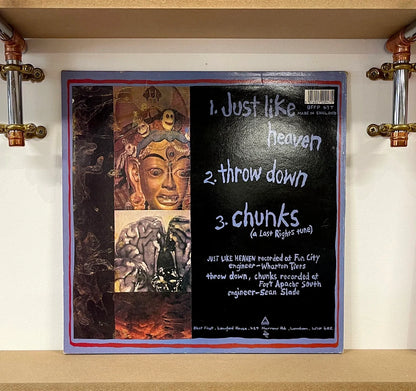 BFFP 45T
MADE IN ENGLAND
1. Just like
heaven
2. throw down
3. chunks
(a Last Rights tune)
JUST LIKE HEAVEN recorded at Fun City
engineer - Wharton Tiers
throw down, chunks recorded at
Fort Apache South
engineer - Sean Slade
Blast First . Harrow Rd . London .